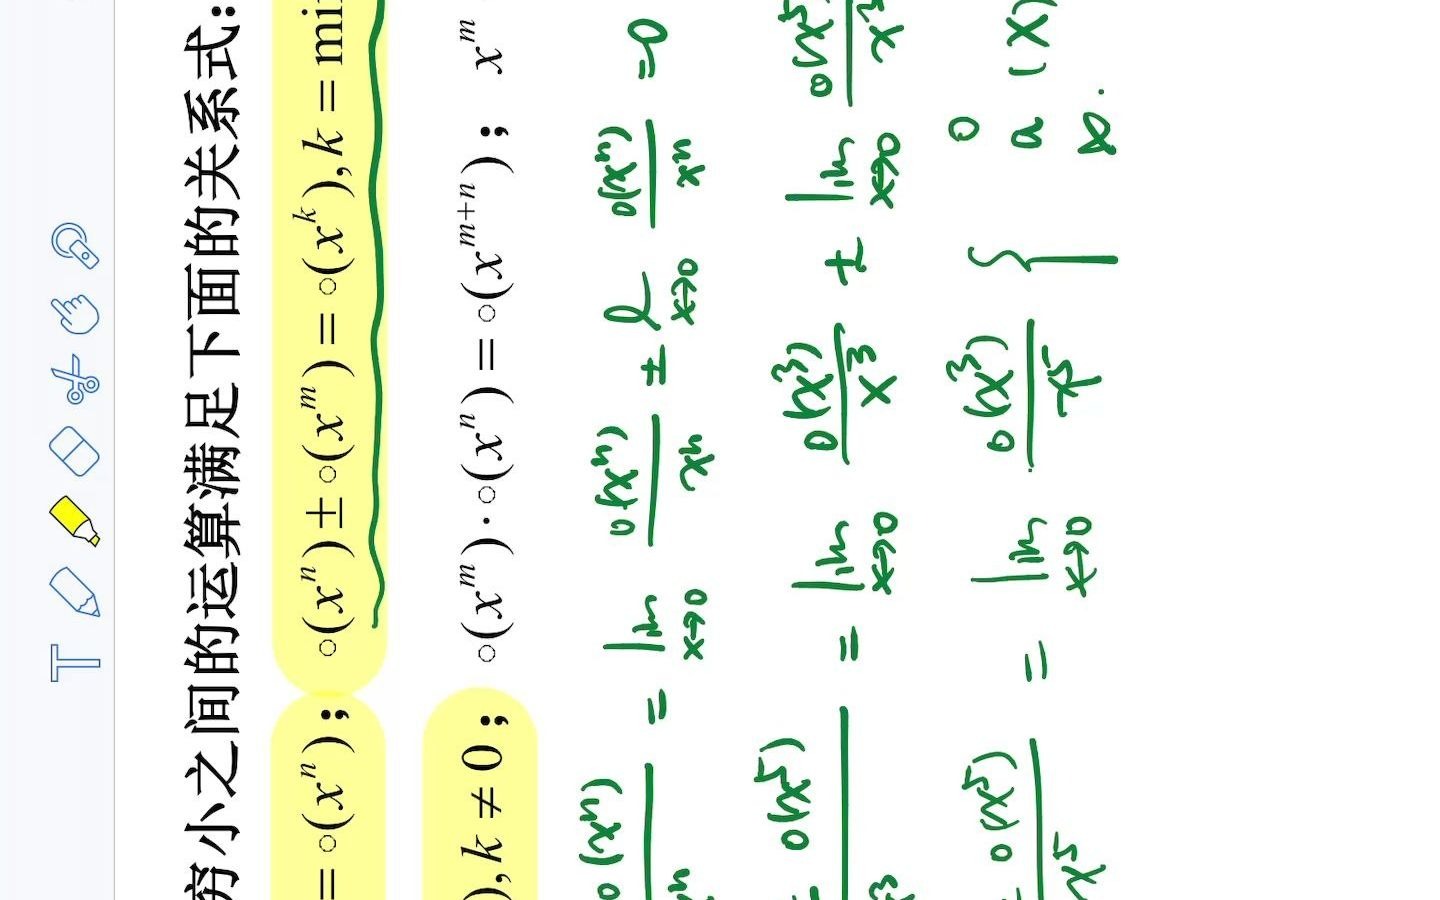 穷小之间的运算满足下面的关系式:
= ∘(xⁿ); ∘(xⁿ) ± ∘(xᵐ) = ∘(xᵏ), k = min
), k ≠ 0; ∘(xᵐ) · ∘(xⁿ) = ∘(xᵐ⁺ⁿ); xᵐ
o(xⁿ) / xⁿ = lim x→0 o(xⁿ) / xⁿ ± l x→0 o(xⁿ) / xⁿ = 0
o(x⁵) / x³ = lim x→0 o(x³) / x³ ± lim x→0 o(x⁵) / x³
o(x⁵) / x⁵ = lim x→0 o(x³) / x⁵ { 0 a (x) ∞.
T